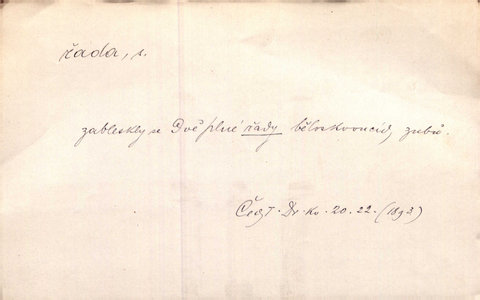 řada, ž.
zableskly se dvě plné řady běloskvoucích zubů.
Čes. Dr. Kv. 20. 22. (1893)